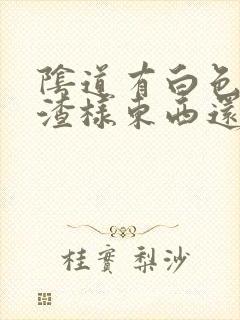 陰道有白色
渣樣東西還
桂實梨沙